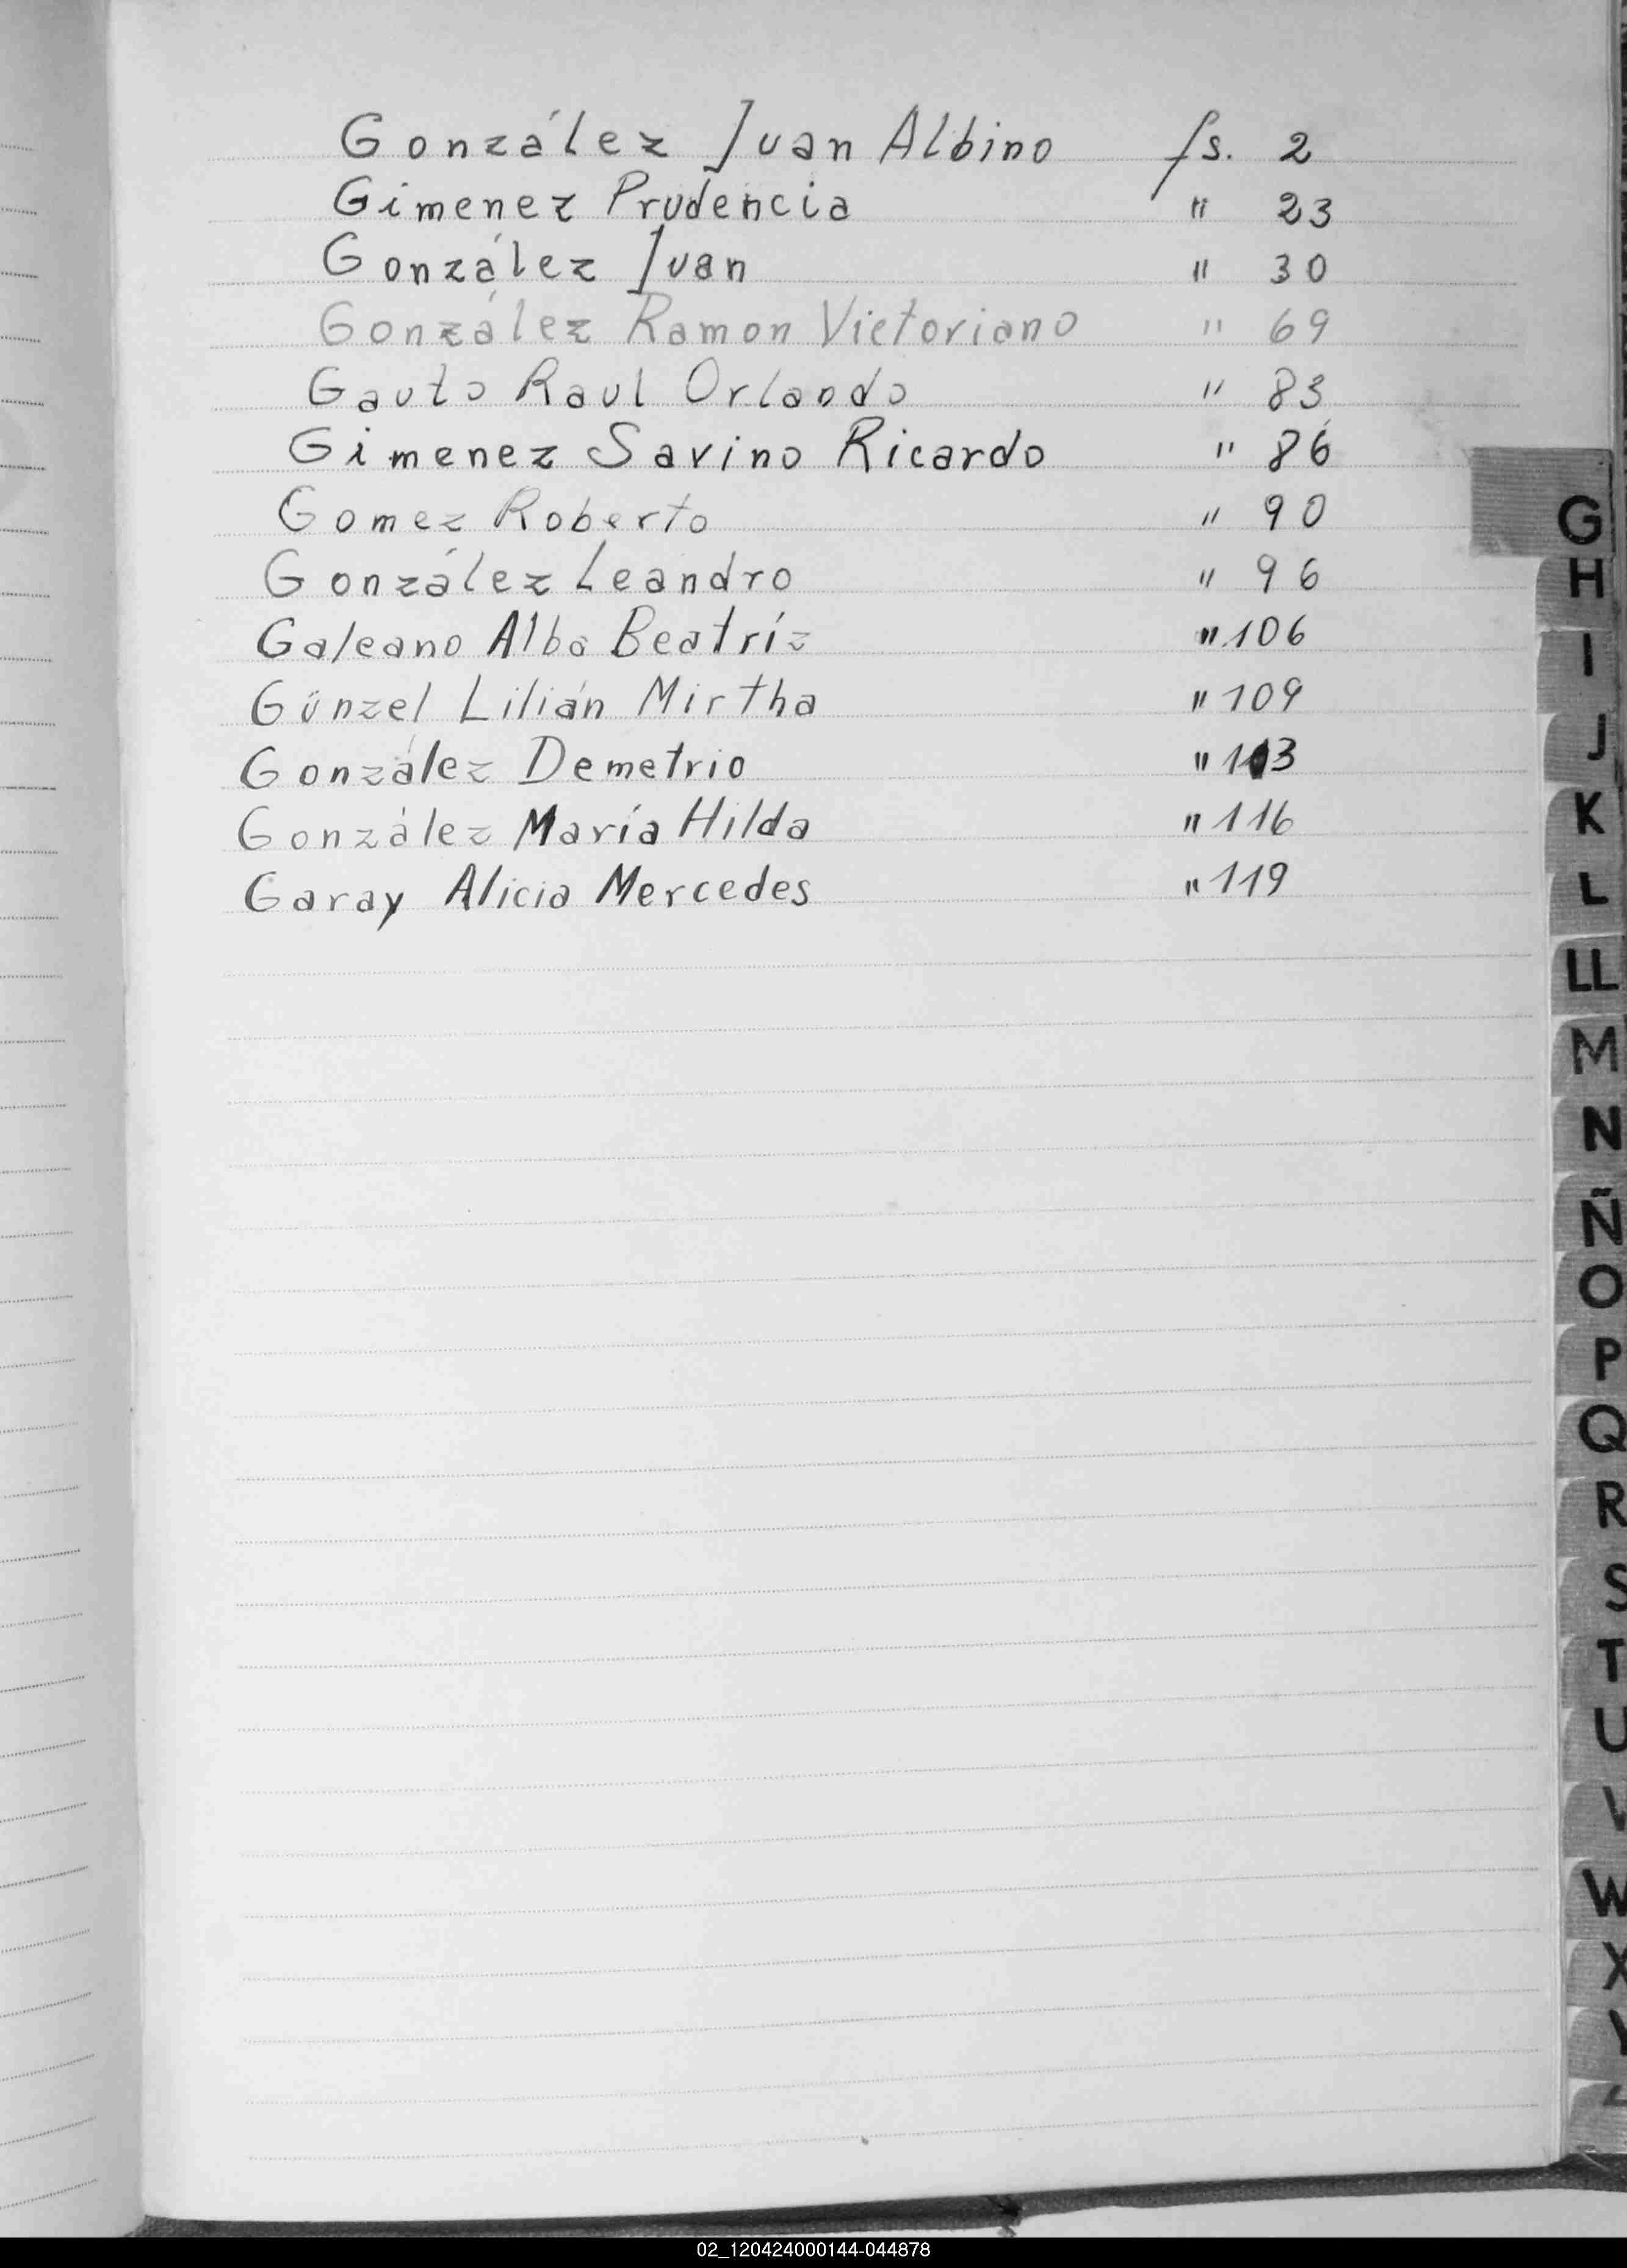 González Juan Albino fs. 2
Gimenez Prudencia " 23
González Juan " 30
González Ramon Victoriano " 69
Gauto Raul Orlando " 83
Gimenez Savino Ricardo " 86
Gomez Roberto " 90
González Leandro " 96
Galeano Alba Beatríz " 106
Günzel Lilián Mirtha " 109
González Demetrio " 113
González María Hilda " 116
Garay Alicia Mercedes " 119
G
H
I
J
K
L
LL
M
N
Ñ
O
P
Q
R
S
T
U
V
W
X
Y
02_120424000144-044878